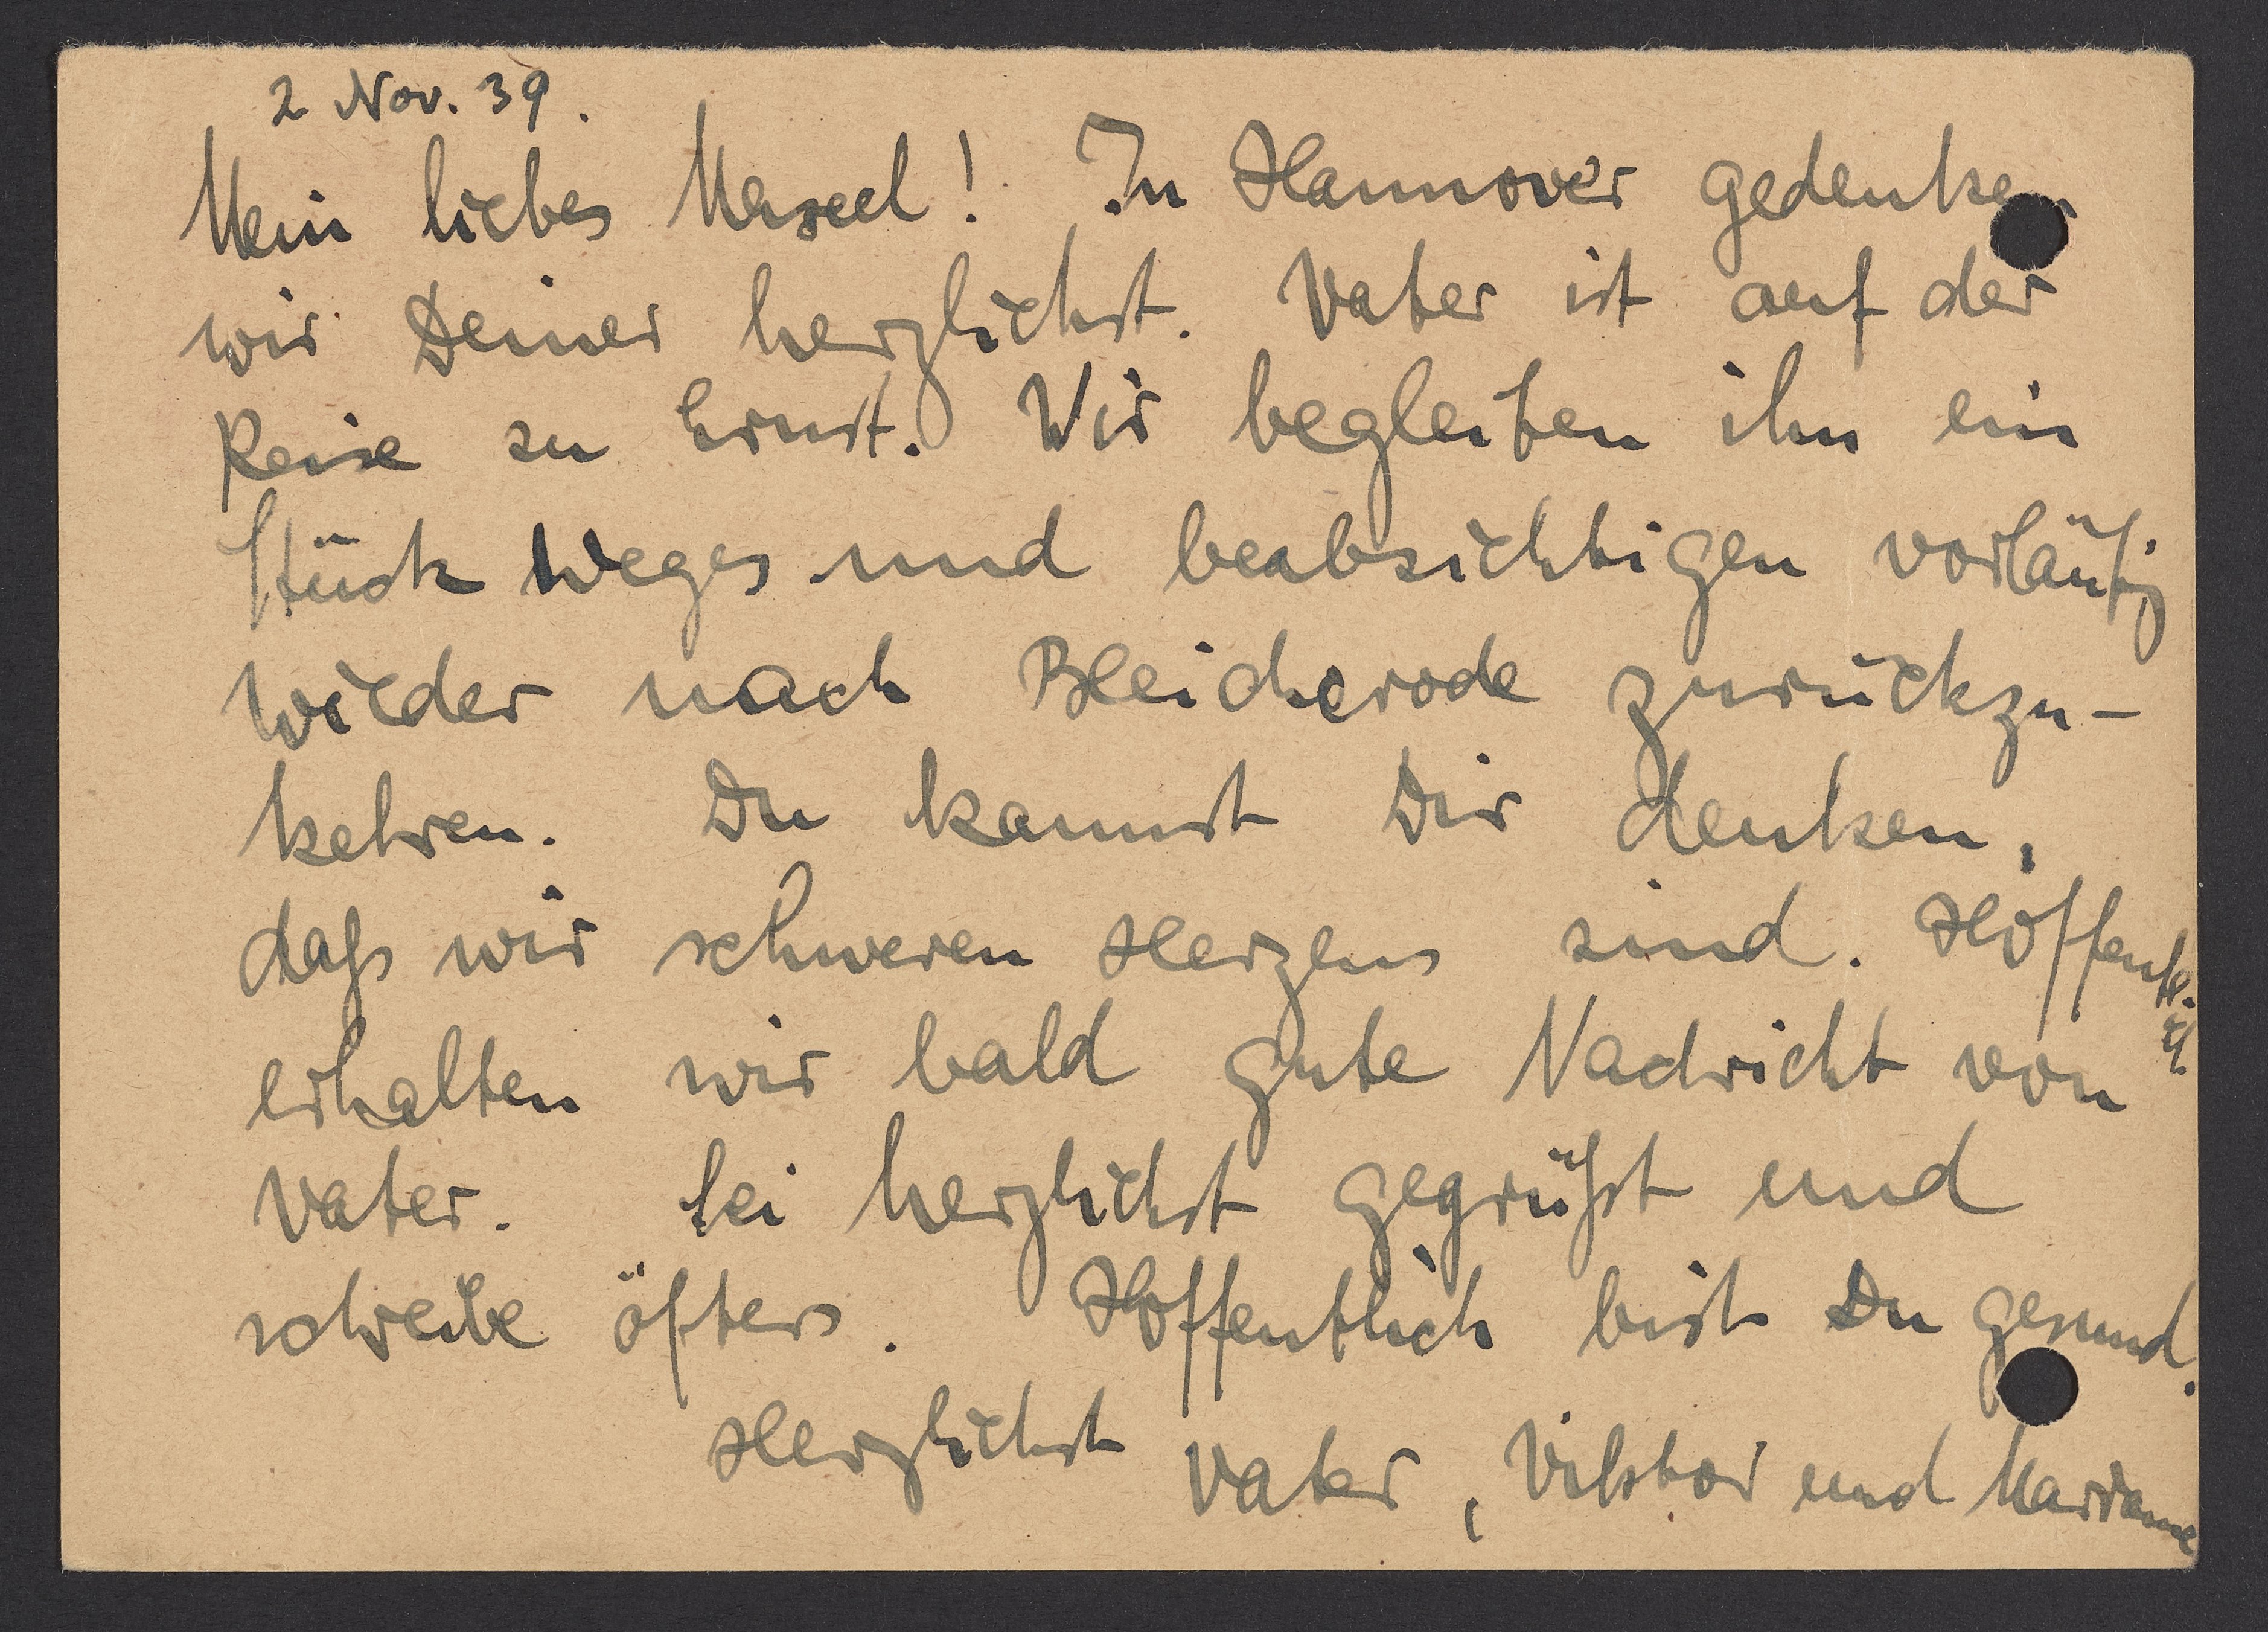 2 Nov. 39.
Mein liebes Marcel! In Hannover gedenken
wir Deiner herzlichst. Vater ist auf der
Reise zu Ernst. Wir begleiten ihn ein
Stück Weges und beabsichtigen vorläufig
wieder nach Bleicherode zurückzu-
kehren. Du kannst Dir denken,
daß wir schweren Herzens sind. Hoffentl.
erhalten wir bald gute Nachricht von
Vater. Sei herzlichst gegrüßt und
schreibe öfters. Hoffentlich bist Du gesund.
Herzlichst Vater, Viktor und Marianne